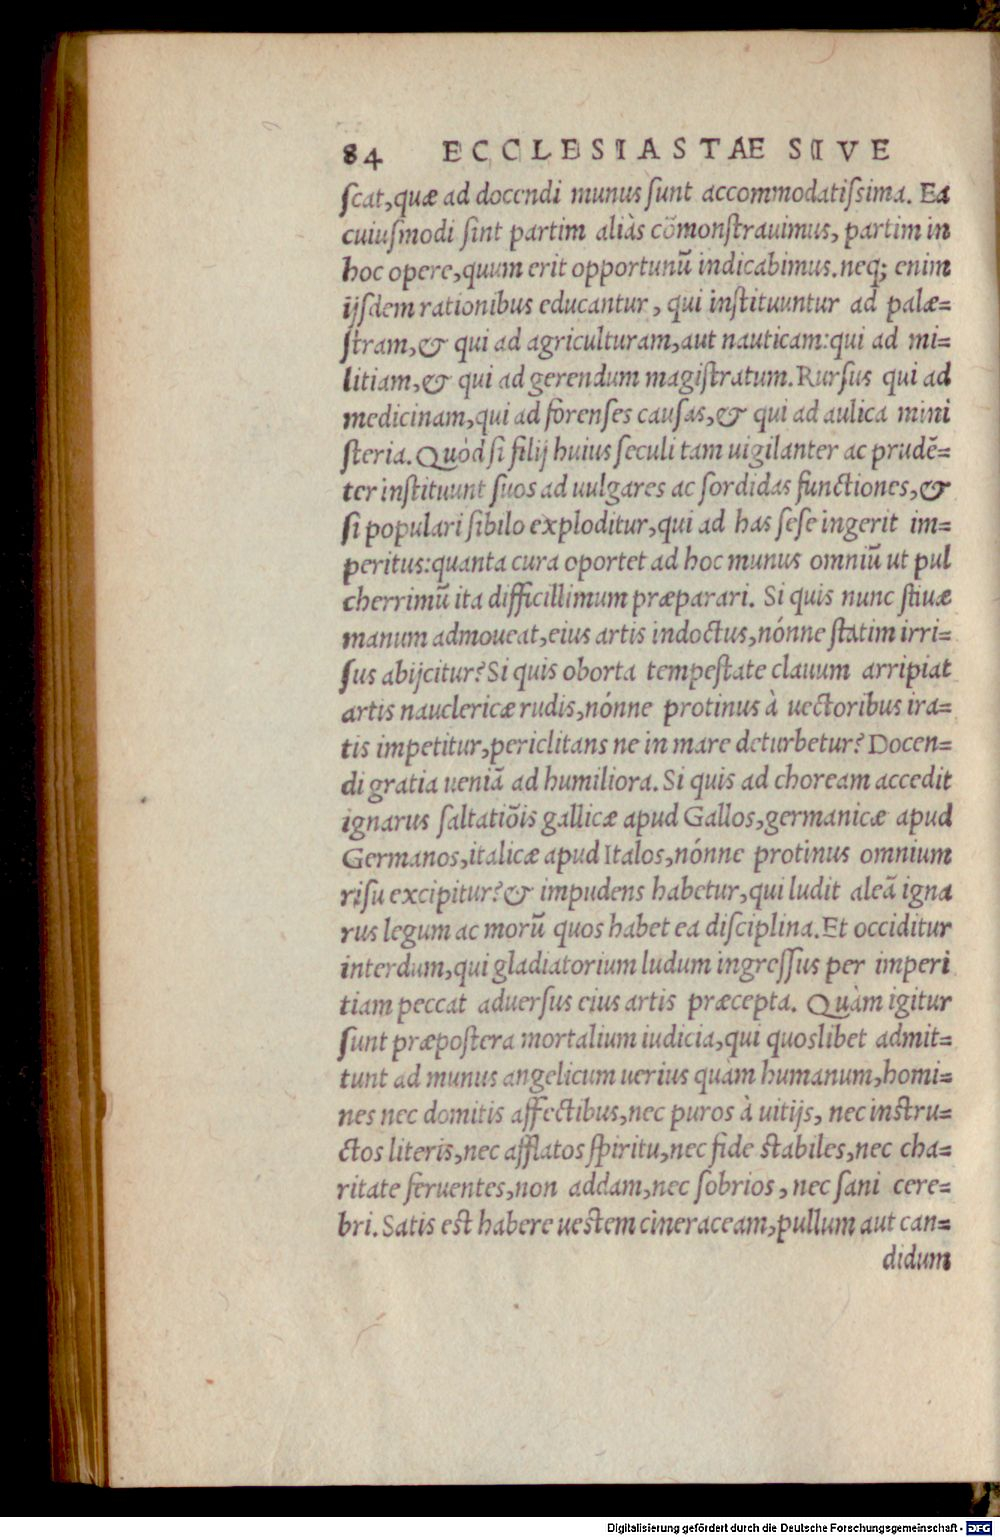 84 ECCLESIASTAE SIVE
ſcat,quæ ad docendi munus ſunt accommodatiſsima. Ea
cuiuſmodi ſint partim aliàs cõmonſtrauimus, partim in
hoc opere,quum erit opportunũ indicabimus.neq; enim
ijſdem rationibus educantur, qui inſtituuntur ad palæ=
ſtram,& qui ad agriculturam,aut nauticam:qui ad mi=
litiam,& qui ad gerendum magiſtratum.Rurſus qui ad
medicinam,qui ad forenſes cauſas,& qui ad aulica mini
ſteria.Quòd ſi filij huius ſeculi tam uigilanter ac prudẽ=
ter inſtituunt ſuos ad uulgares ac ſordidas functiones,&
ſi populari ſibilo exploditur,qui ad has ſeſe ingerit im=
peritus:quanta cura oportet ad hoc munus omniũ ut pul
cherrimũ ita difficillimum præparari. Si quis nunc ſtiuæ
manum admoueat,eius artis indoctus,nónne ſtatim irri=
ſus abijcitur?Si quis oborta tempeſtate clauum arripiat
artis nauclericæ rudis,nónne protinus à uectoribus ira=
tis impetitur,periclitans ne in mare deturbetur?Docen=
di gratia ueniã ad humiliora.Si quis ad choream accedit
ignarus ſaltatiõis gallicæ apud Gallos,germanicæ apud
Germanos,italicæ apud Italos,nónne protinus omnium
riſu excipitur?& impudens habetur,qui ludit aleã igna
rus legum ac morũ quos habet ea diſciplina.Et occiditur
interdum,qui gladiatorium ludum ingreſſus per imperi
tiam peccat aduerſus eius artis præcepta. Quàm igitur
ſunt præpoſtera mortalium iudicia,qui quoslibet admit=
tunt ad munus angelicum uerius quàm humanum,homi=
nes nec domitis affectibus,nec puros à uitijs, nec inſtru=
ctos literis,nec afflatos ſpiritu,nec fide ſtabiles,nec cha=
ritate feruentes,non addam,nec ſobrios, nec ſani cere=
bri.Satis eſt habere ueſtem cineraceam,pullum aut can=
didum
Digitalisierung gefördert durch die Deutsche Forschungsgemeinschaft - DFG